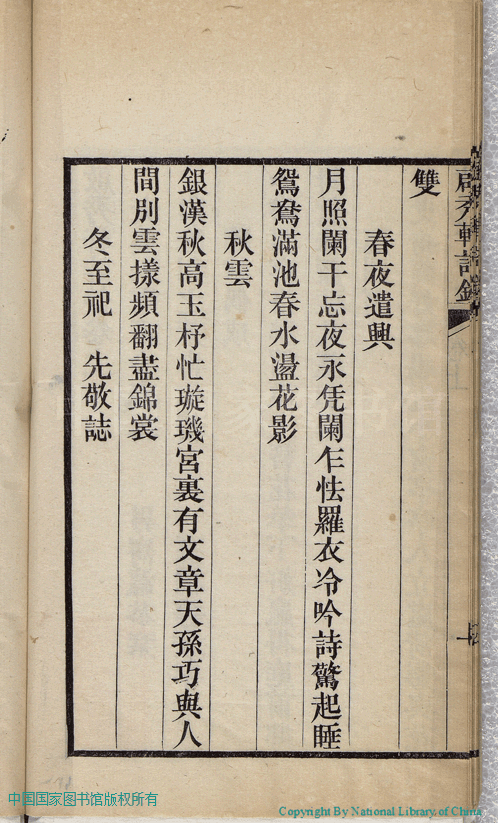 雙
春夜遣興
月照闌干忘夜永凭闌乍怯羅衣冷吟詩驚起睡
鴛鴦滿池春水盪花影
秋雲
銀漢秋高玉杼忙璇璣宮裏有文章天孫巧與人
間別雲㨾頻翻盡錦裳
冬至祀　先敬誌
中国国家图书馆版权所有
Copyright By National Library of China